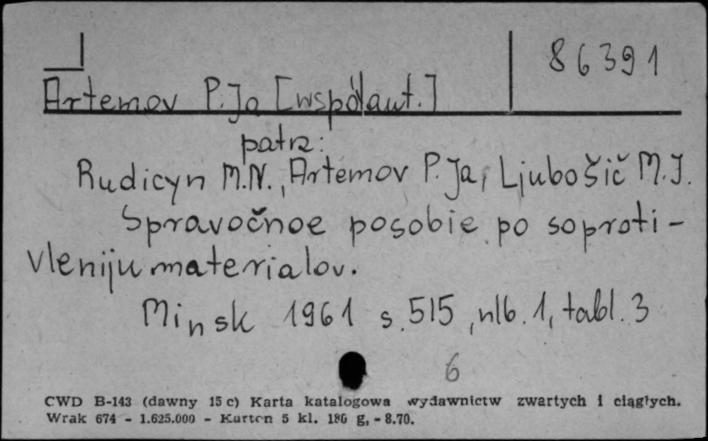 86391
Artemov P. Ja [współaut.]
patrz:
Rudicyn M.N., Artemov P. Ja, Ljubošič M.J.
Spravočnoe posobie po soproti-
vleniju materialov.
Minsk 1961 s. 515, nlb. 1, tabl. 3
6
CWD B-143 (dawny 15 c) Karta katalogowa wydawnictw zwartych i ciągłych.
Wrak 674 - 1.625.000 - Karton 5 kl. 180 g, - 8.70.